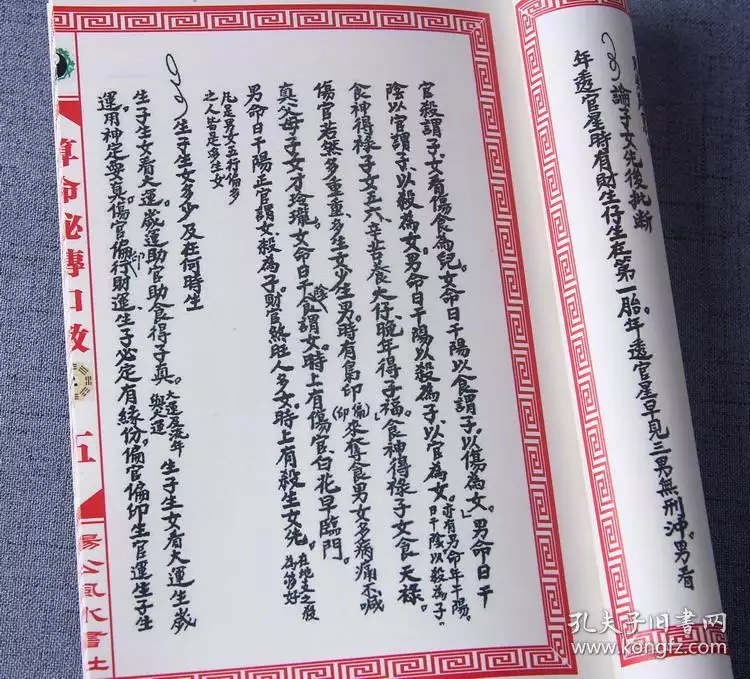 論子女先後批斷
年透官星時有財生仔生在第一胎。年透官星早見三男無刑沖。男看
官殺謂子女看傷食為兒。女命日干陽以食謂子。以傷為女。」男命日干
陰以官謂子以殺為女。男命日干陽以殺為子。以官為女。亦有男命年干陽。
日干陰以殺為子。
食神得祿子女五六。辛苦養大仔。晚年得子福。食神得祿子女食天祿。
傷官若然多重重、多生女少生男。時有梟印(偏印)來奪食男女多病痛不喊
真父母子女才玲瓏。女命日干陰食謂女。時上有傷官、白花早臨門。
男命日干陽正官謂女殺為子。財官煞旺人多女。時上有殺生女先。在地生之殺
為第好
凡是男女五行偏多
之人皆定多生女
生子生女多少及在何時生
生子生女看大運。歲運助官助食得子真。大運 流年 生子生女看大運生歲
運用神定 真。傷官偏印行財運生子必定有緣份。偏官偏印生官運生子生
算命秘傳口教
五
楊公風水書社
孔夫子旧书网
www.kongfz.com